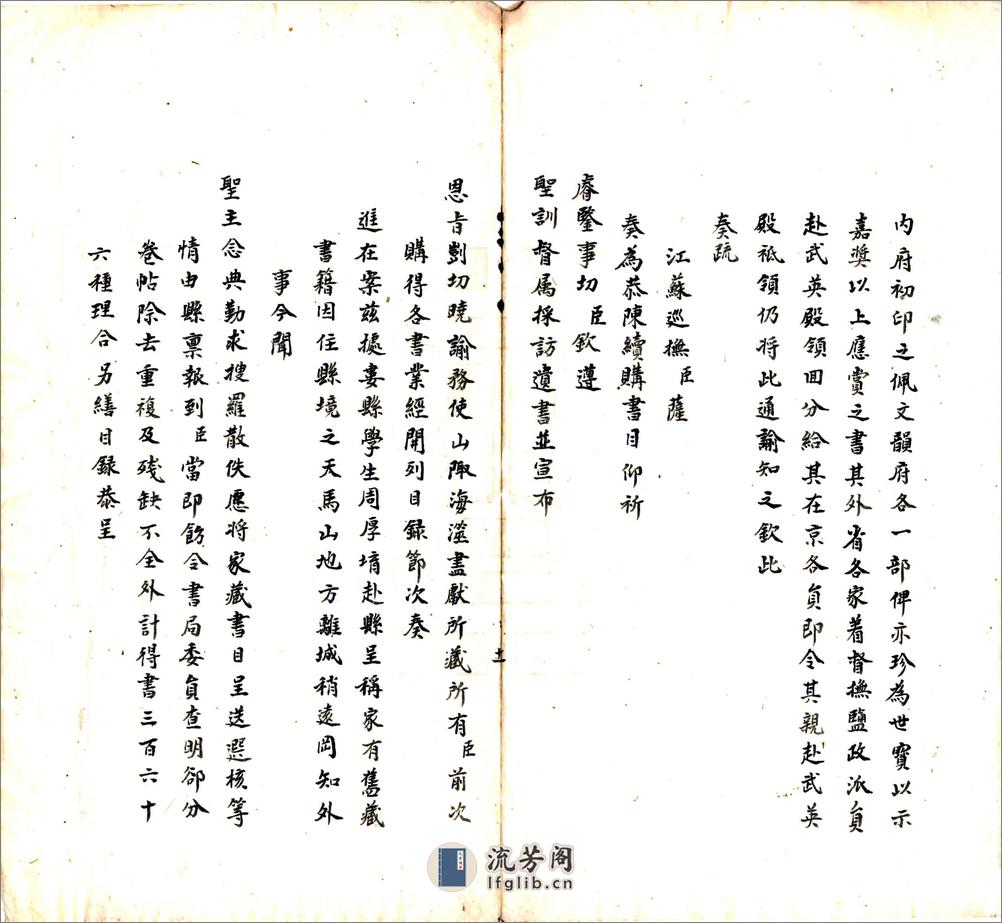 內府初印之佩文韻府各一部俾亦珍為世寶以示
嘉獎以上應賞之書其外省各家着督撫鹽政派員
赴武英殿領回分給其在京各員即令其親赴武英
殿祗領仍将此通諭知之欽此
奏疏
江蘇巡撫臣薩
奏為恭陳續購書目仰祈
睿鑒事切臣欽遵
聖訓督属採訪遺書並宣布
十一
恩旨剴切曉諭務使山陬海澨盡獻所藏所有臣前次
購得各書業經開列目録節次奏
進在案兹據婁縣學生周厚堉赴縣呈稱家有舊藏
書籍因住縣境之天馬山地方離城稍遠罔知外
事今聞
聖主念典勤求搜羅散佚愿将家藏書目呈送選核等
情由縣禀報到臣當即飭令書局委員查明卻分
卷帖除去重複及残缺不全外計得書三百六十
六種理合另繕目録恭呈
流芳阁
lfglib.cn